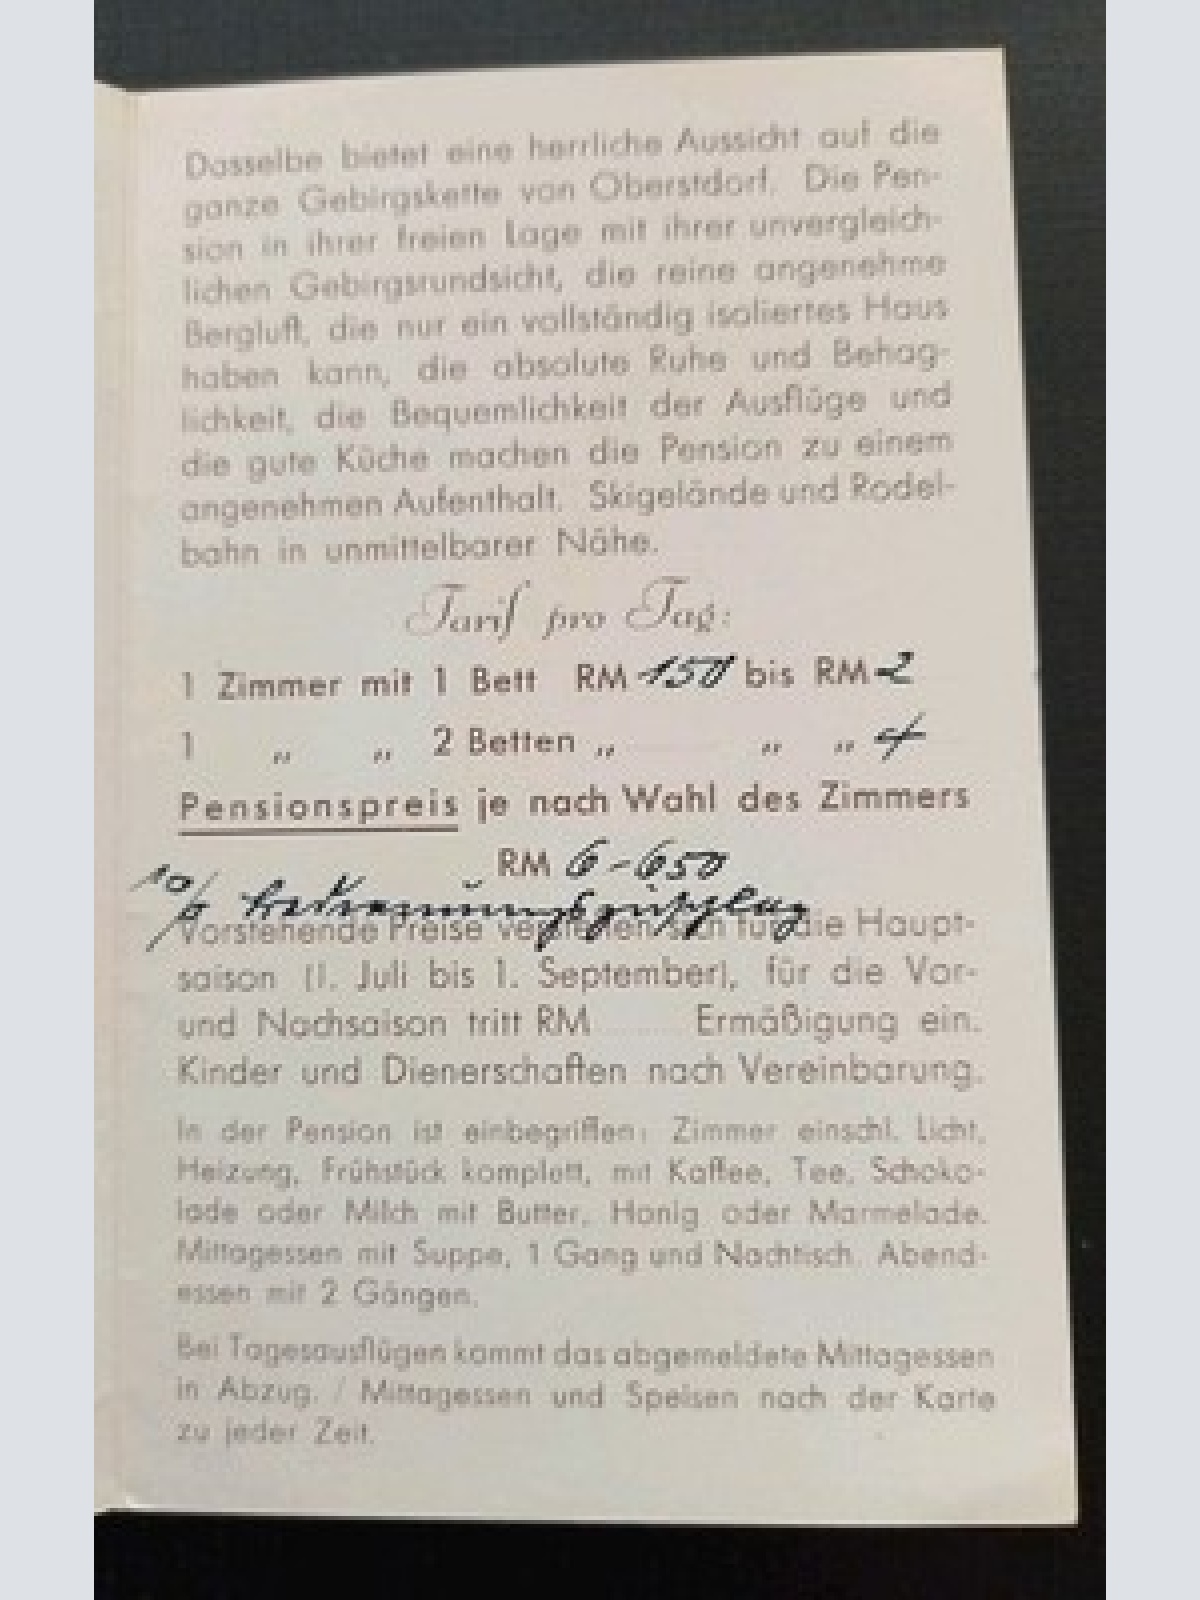 Dasselbe bietet eine herrliche Aussicht auf die
ganze Gebirgskette von Oberstdorf. Die Pen-
sion in ihrer freien Lage mit ihrer unvergleich-
lichen Gebirgsrundsicht, die reine angenehme
Bergluft, die nur ein vollständig isoliertes Haus
haben kann, die absolute Ruhe und Behag-
lichkeit, die Bequemlichkeit der Ausflüge und
die gute Küche machen die Pension zu einem
angenehmen Aufenthalt. Skigelände und Rodel-
bahn in unmittelbarer Nähe.
Tarif pro Tag:
1 Zimmer mit 1 Bett RM 150 bis RM 2
1 „ „ 2 Betten „ „ „ 4
Pensionspreis je nach Wahl des Zimmers
RM 6-650
10%
Vorstehende Preise verstehen sich für die Haupt-
saison (1. Juli bis 1. September), für die Vor-
und Nachsaison tritt RM Ermäßigung ein.
Kinder und Dienerschaften nach Vereinbarung.
In der Pension ist einbegriffen: Zimmer einschl. Licht,
Heizung, Frühstück komplett, mit Kaffee, Tee, Schoko-
lade oder Milch mit Butter, Honig oder Marmelade.
Mittagessen mit Suppe, 1 Gang und Nachtisch. Abend-
essen mit 2 Gängen.
Bei Tagesausflügen kommt das abgemeldete Mittagessen
in Abzug. / Mittagessen und Speisen nach der Karte
zu jeder Zeit.